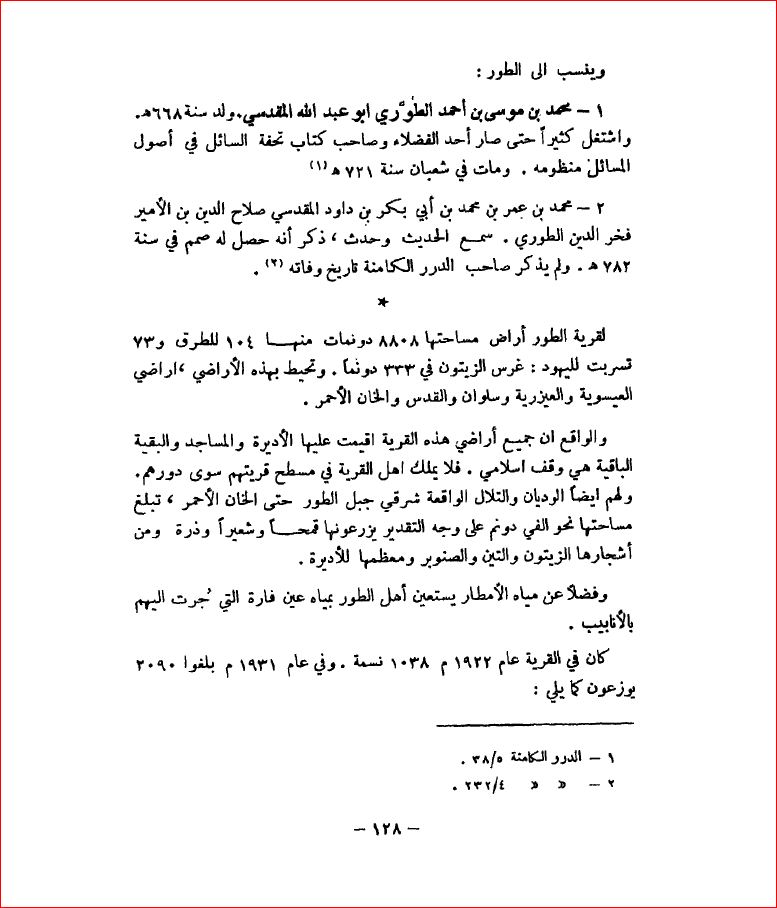 وينسب الى الطور :
١ – محمد بن موسى بن أحمد الطوُّري ابو عبد الله المقدسي.ولد سنة ٦٦٨هـ.
واشتغل كثيراً حتى صار أحد الفضلاء وصاحب كتاب تحفة السائل في أصول
المسائل منظومه . ومات في شعبان سنة ٧٢١ هـ (١)
٢ – محمد بن عمر بن محمد بن أبي بكر بن داود المقدسي صلاح الدين بن الأمير
فخر الدين الطوري . سمع الحديث وحدث ، ذكر أنه حصل له صمم في سنة
٧٨٢ هـ . ولم يذكر صاحب الدرر الكامنة تاريخ وفاته (٢) .
*
لقرية الطور أراض مساحتها ٨٨٠٨ دونمات منهــا ١٠٤ للطرق و٧٣
تسربت لليهود : غرس الزيتون في ٣٣٣ دونماً . وتحيط بهذه الأراضي ،اراضي
العيسوية والعيزرية وسلوان والقدس والخان الأحمر .
والواقع ان جميع أراضي هذه القرية اقيمت عليها الأديرة والمساجد والبقية
الباقية هي وقف اسلامي . فلا يملك اهل القرية في مسطح قريتهم سوى دورهم.
ولهم ايضاً الوديان والتلال الواقعة شرقي جبل الطور حتى الخان الأحمر ، تبلغ
مساحتها نحو الفي دونم على وجه التقدير يزرعونها قمحــاً وشعيراً وذرة ومن
أشجارها الزيتون والتين والصنوبر ومعظمها للأديرة .
وفضلاً عن مياه الأمطار يستعين أهل الطور بمياه عين فارة التي ُجرت اليهم
بالأنابيب .
كان في القرية عام ١٩٢٢ م ١٠٣٨ نسمة . وفي عام ١٩٣١ م بلغوا ٢٠٩٠
يوزعون كما يلي :
١ – الدرو الكامنة ٣٨/٥ .
٢ – » » ٢٣٢/٤ .
– ١٢٨ –